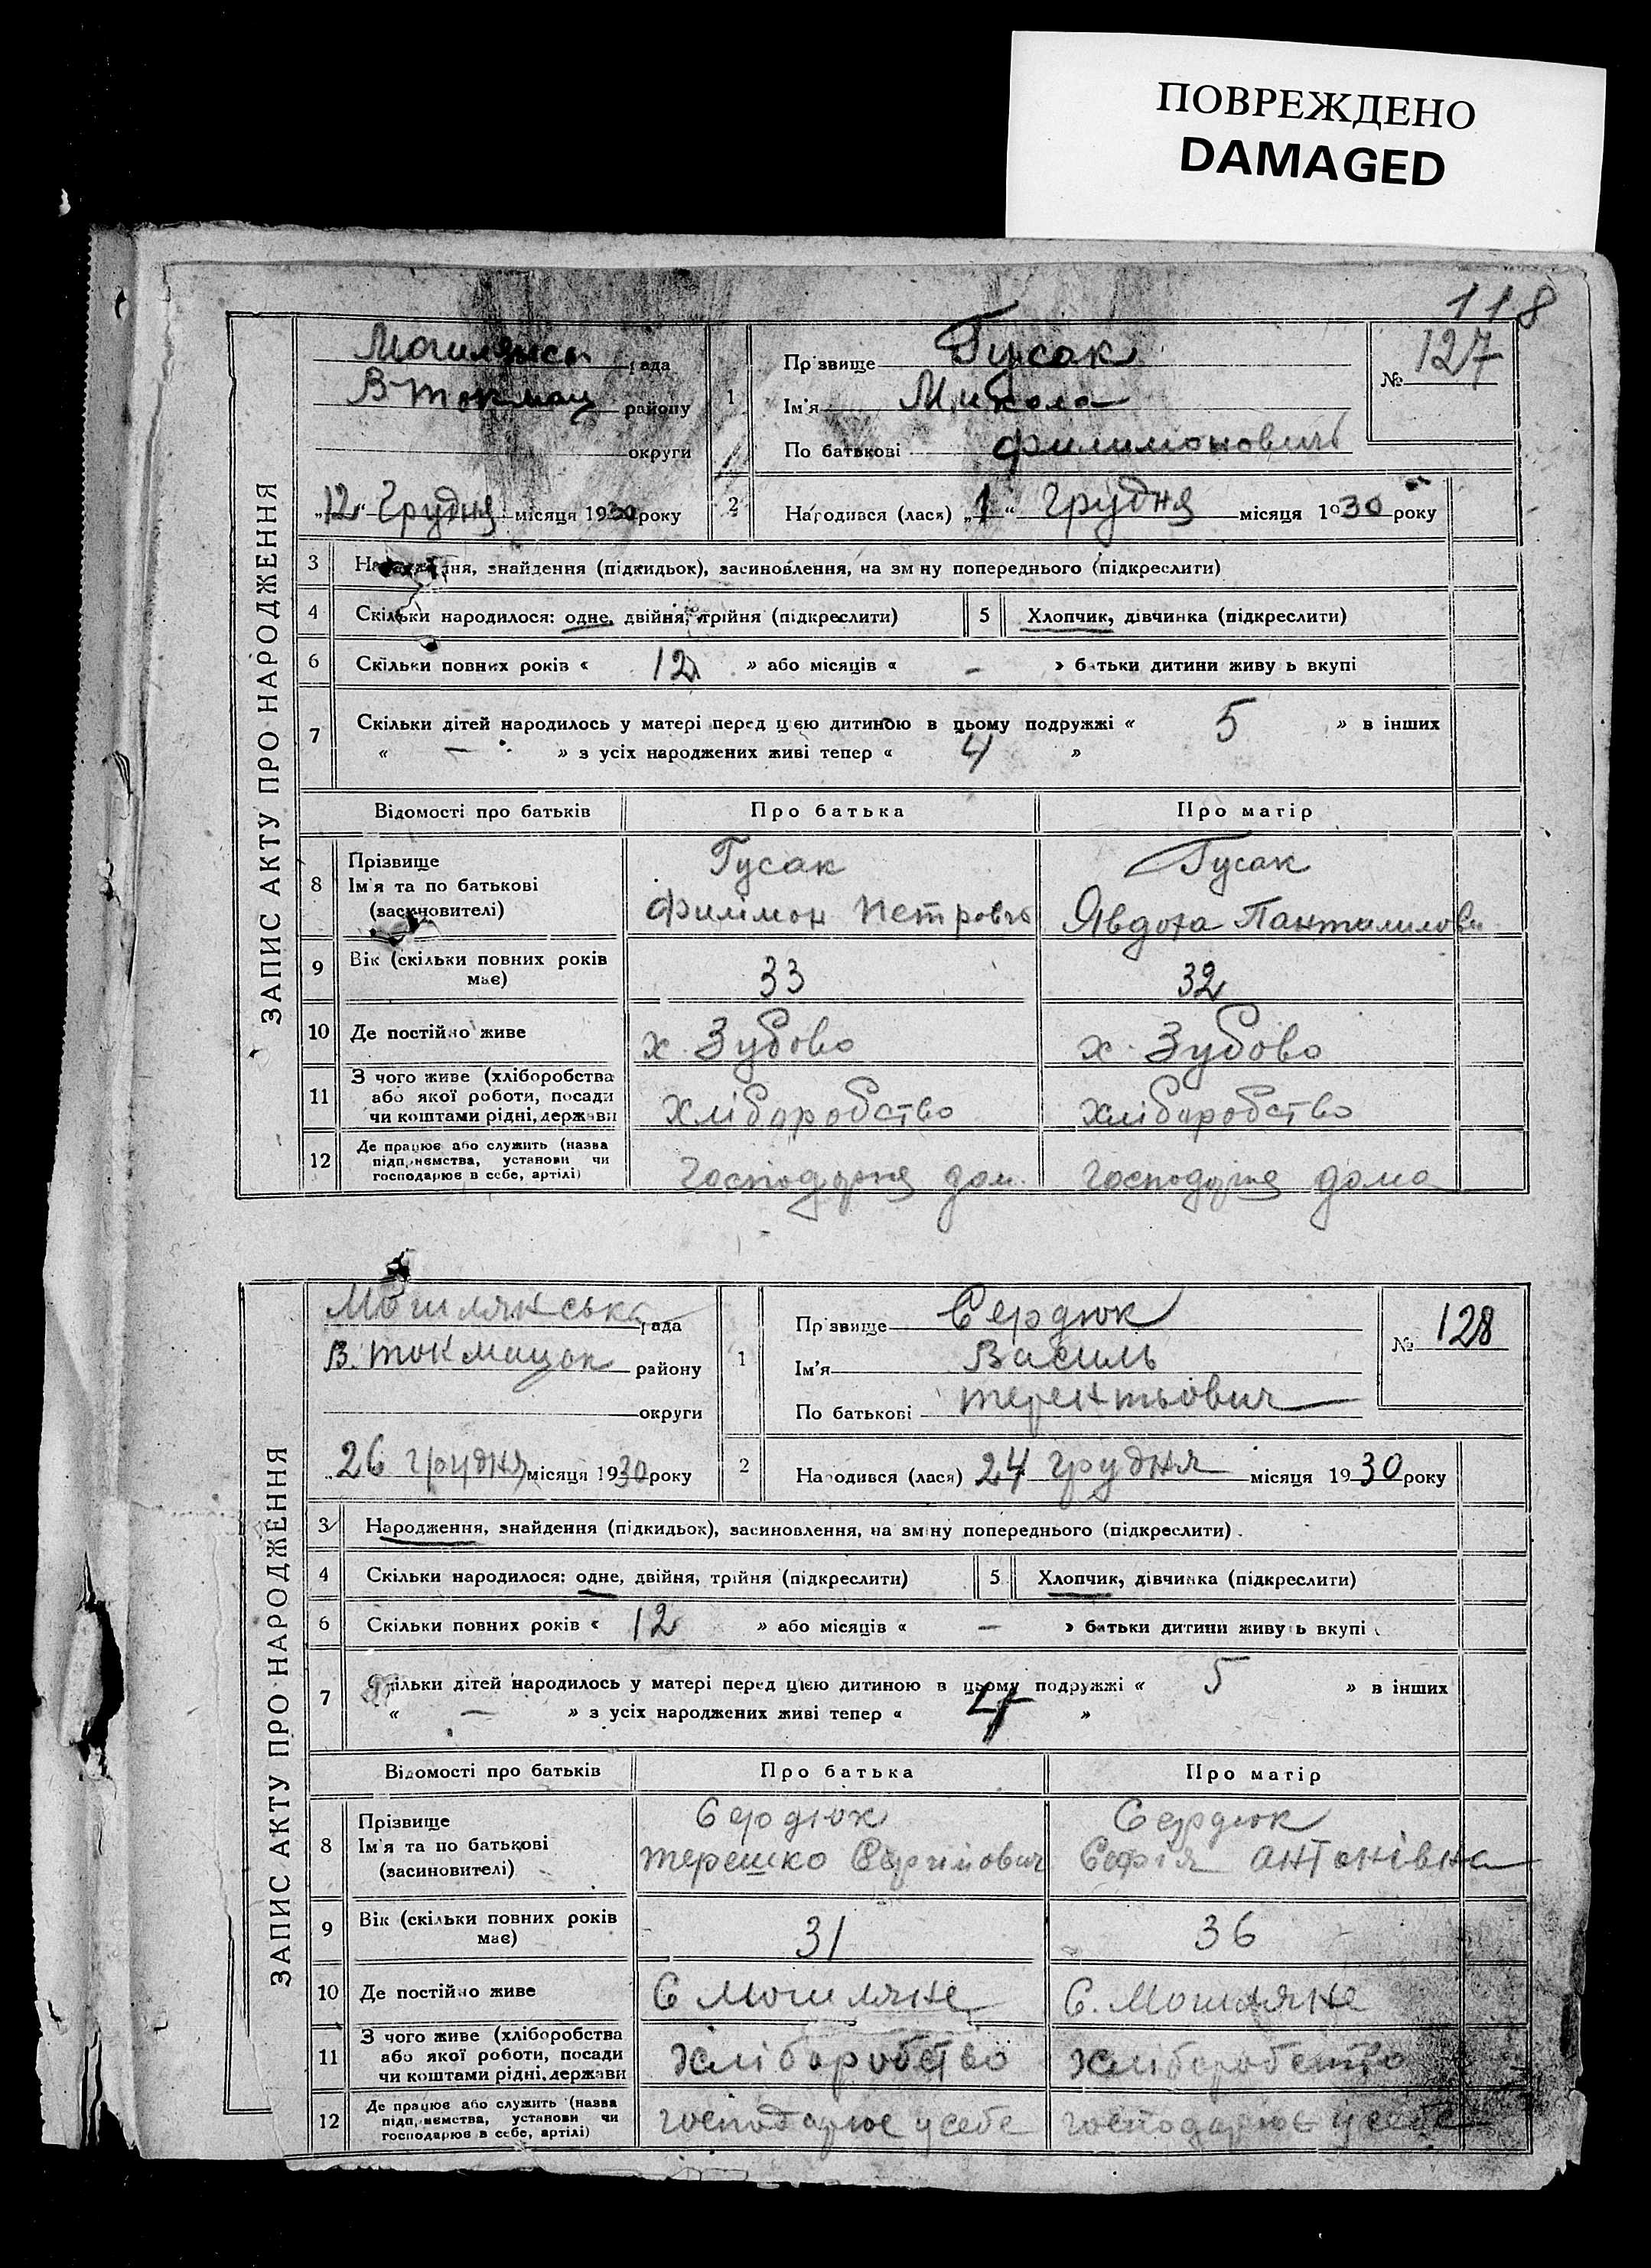 ПОВРЕЖДЕНО
DAMAGED
118
ЗАПИС АКТУ ПРО НАРОДЖЕННЯ
рада
В Токмац району
округи
"12" Грудня місяця 1930 року
1
Прізвище Гусак
Ім'я Микола
По батькові Филимоновичь
№ 127
2
Народився (лася) "1" Грудня місяця 1930 року
3 Народження, знайдення (підкидьок), засиновлення, на зміну попереднього (підкреслити)
4 Скільки народилося: одне, двійня, трійня (підкреслити) 5 Хлопчик, дівчинка (підкреслити)
6 Скільки повних років « 12 » або місяців « - » батьки дитини живуть вкупі
7 Скільки дітей народилось у матері перед цією дитиною в цьому подружжі « 5 » в інших
« - » з усіх народжених живі тепер « 4 »
Відомості про батьків Про батька Про матір
8 Прізвище Гусак Гусак
Ім'я та по батькові
(засиновителі) Филімон Петровчь Явдоха
9 Вік (скільки повних років має) 33 32
10 Де постійно живе х. Зубово х. Зубово
11 З чого живе (хліборобства
або якої роботи, посади
чи коштами рідні, держави хліборобство хліборобство
12 Де працює або служить (назва
підприємства, установи чи
господарює в себе, артілі) дом. дома
ЗАПИС АКТУ ПРО НАРОДЖЕННЯ
рада
В. Токмацок району
округи
"26 грудня місяця 1930 року
1
Прізвище Сердюк
Ім'я Василь
По батькові Терентьович
№ 128
2
Народився (лася) 24 грудня місяця 1930 року
3 Народження, знайдення (підкидьок), засиновлення, на зміну попереднього (підкреслити).
4 Скільки народилося: одне, двійня, трійня (підкреслити) 5 Хлопчик, дівчинка (підкреслити)
6 Скільки повних років « 12 » або місяців « - » батьки дитини живуть вкупі
7 Скільки дітей народилось у матері перед цією дитиною в цьому подружжі « 5 » в інших
« - » з усіх народжених живі тепер « 4 »
Відомості про батьків Про батька Про матір
8 Прізвище Сердюк Сердюк
Ім'я та по батькові
(засиновителі) Терешко Софія Антонівна
9 Вік (скільки повних років має) 31 36
10 Де постійно живе С Могиляне С. Могиляне
11 З чого живе (хліборобства
або якої роботи, посади
чи коштами рідні, держави хліборобство хліборобство
12 Де працює або служить (назва
підприємства, установи чи
господарює в себе, артілі) господарює у себе господарює у себе